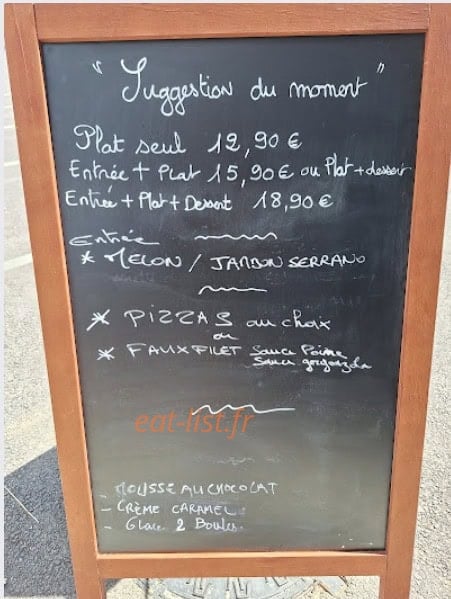 " Suggestion du moment "
Plat seul 12,90 €
Entrée + Plat 15,90 € ou Plat + dessert
Entrée + Plat + Dessert 18,90 €
Entrée
* MELON / JAMBON SERRANO
* PIZZAS au choix
ou
* FAUX FILET Sauce Poivre
Sauce gorgonzola
eat-list.fr
- MOUSSE AU CHOCOLAT
- CRÈME CARAMEL
- Glace 2 Boules